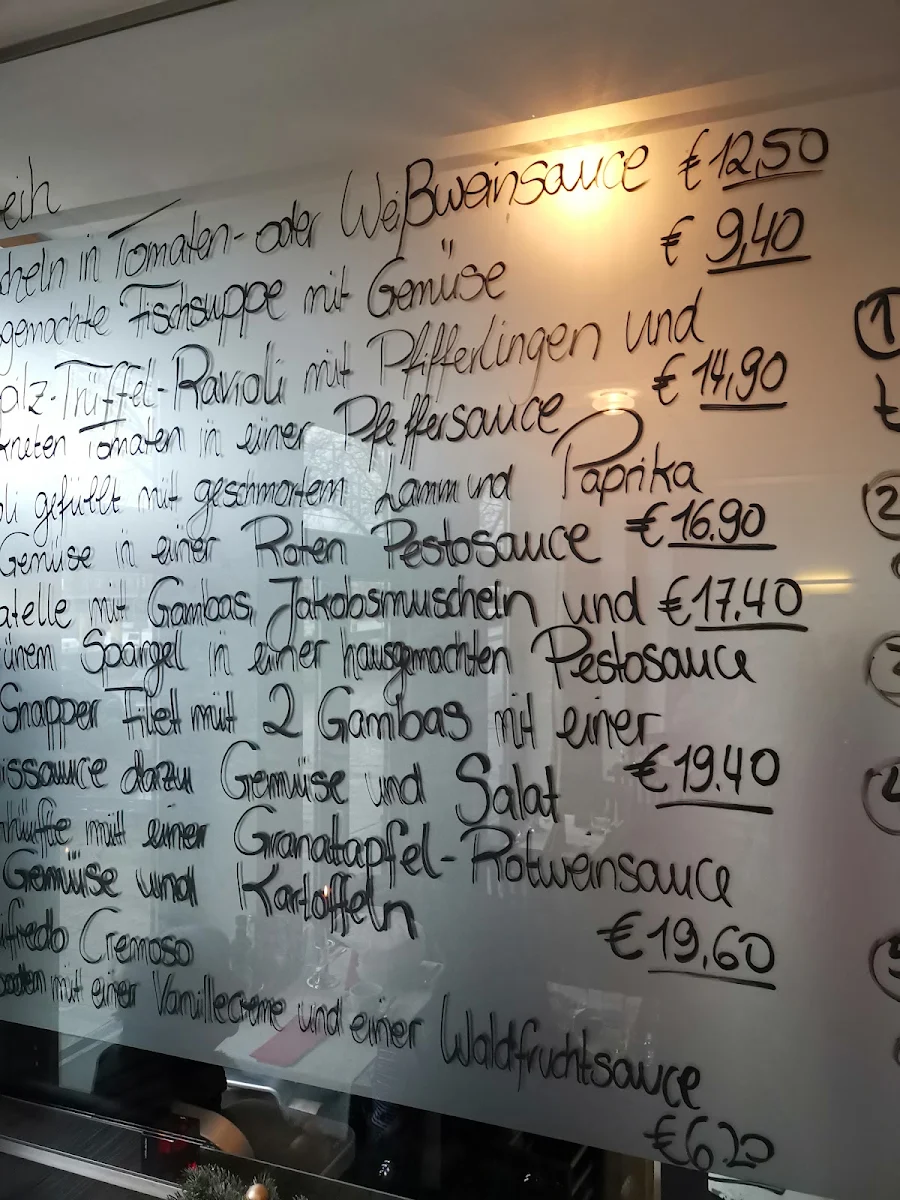 eih
cheln in Tomaten- oder Weißweinsauce € 12,50
gemachte Fischsuppe mit Gemüse € 9,40
pilz-Trüffel-Ravioli mit Pfifferlingen und
kneten Tomaten in einer Pfeffersauce € 14,90
oli gefüllt mit geschmortem Lamm und Paprika
Gemüse in einer Roten Pestosauce € 16.90
atelle mit Gambas, Jakobsmuscheln und € 17.40
ünem Spargel in einer hausgemachten Pestosauce
Snapper Filet mit 2 Gambas mit einer
issauce dazu Gemüse und Salat € 19.40
hüfte mit einer Granatapfel-Rotweinsauce
Gemüse und Kartoffeln € 19,60
ifredo Cremoso
mit einer Vanillecreme und einer Waldfruchtsauce
€ 6,20
1
t
2